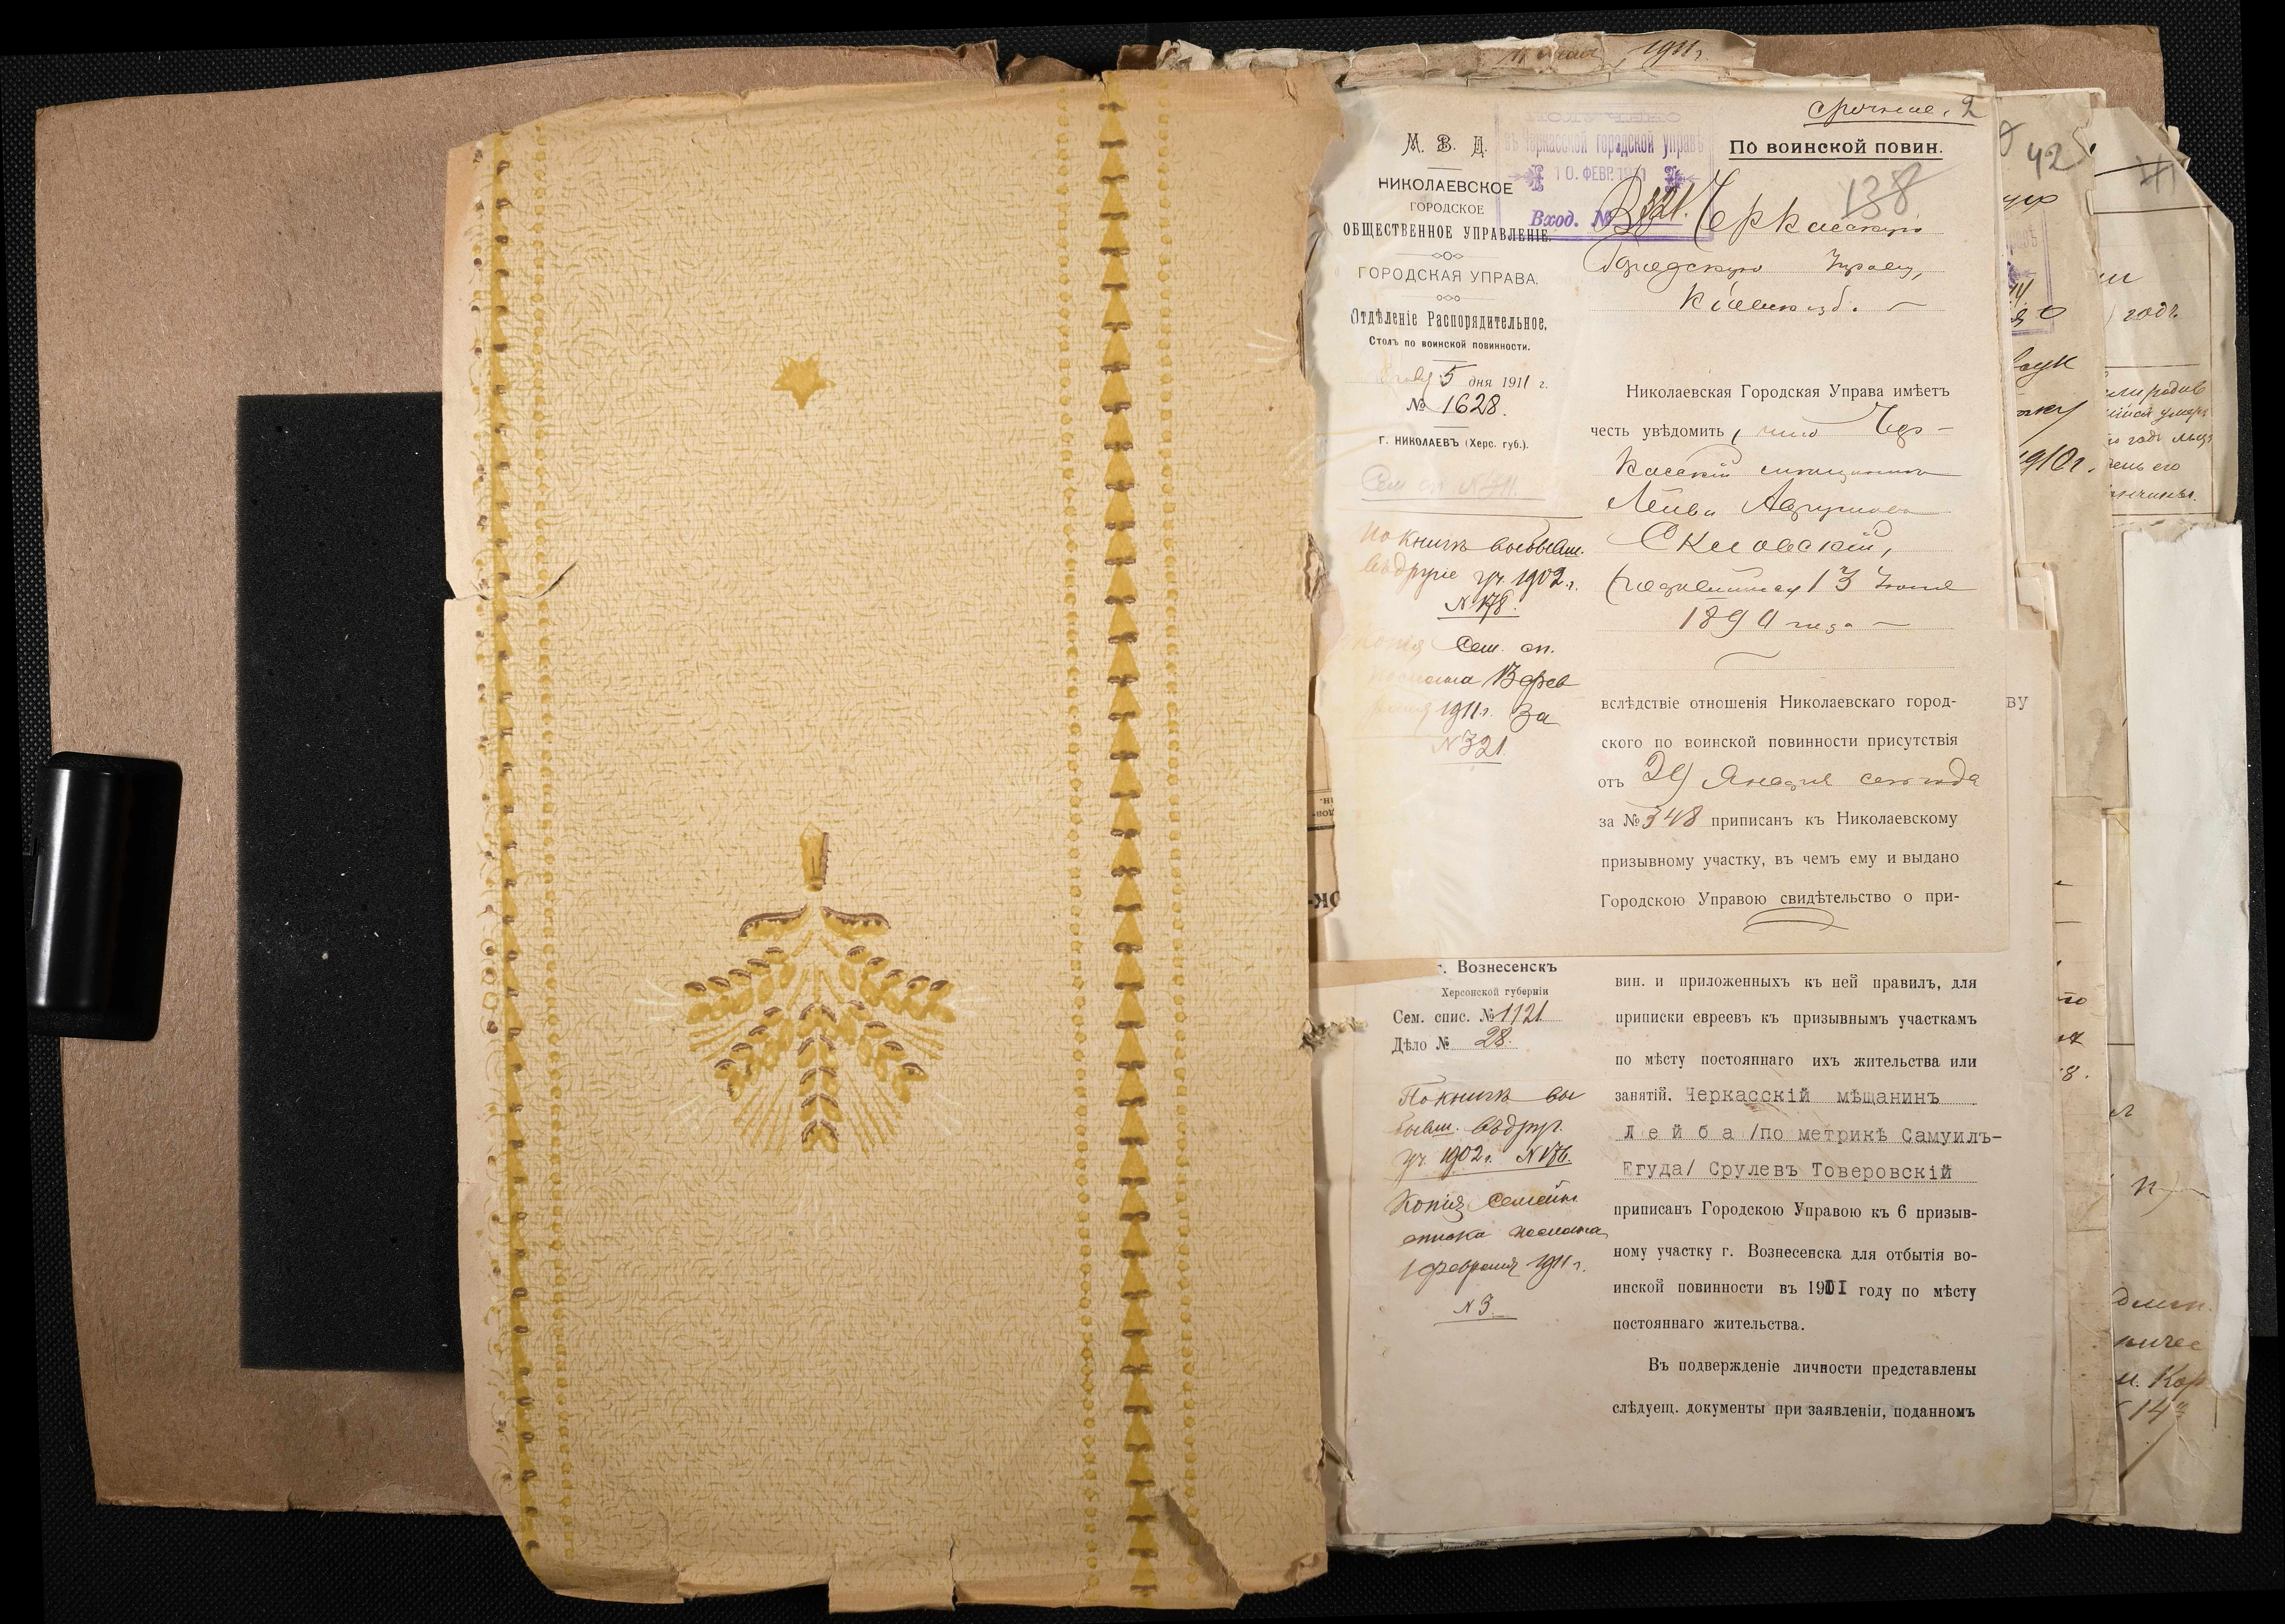 1911 г.
срочное. 2
М. В. Д.
НИКОЛАЕВСКОЕ
ГОРОДСКОЕ
ОБЩЕСТВЕННОЕ УПРАВЛЕНІЕ.
ГОРОДСКАЯ УПРАВА.
Отдѣленіе Распорядительное.
Столъ по воинской повинности.
5 дня 1911 г.
№ 1628.
Г. НИКОЛАЕВЪ (Херс. губ.).
По книгѣ выбывш.
въ другіе уч. 1902 г.
N 178.
Копія Сем. сп.
послана 13 фев
раля 1911 г. За
N 321
ПОЛУЧЕНО
въ Черкасской городской управѣ
10. ФЕВР. 1911
Вход. № 321.
По воинской повин.
138
Въ Черкасскую
Городскую Управу,
Кіевск. губ.
Николаевская Городская Управа имѣетъ
честь увѣдомить, что Чер-
касскій мѣщанинъ
Лейба
(родившійся 13 Іюня
1890 года
вслѣдствіе отношенія Николаевскаго город-
ского по воинской повинности присутствія
отъ 29 Января сего года
за № 348 приписанъ къ Николаевскому
призывному участку, въ чемъ ему и выдано
Городскою Управою свидѣтельство о при-
г. Вознесенскъ
Херсонской губерніи
Сем. спис. № 1121
Дѣло № 28.
По книгѣ вы
бывш. въ друг.
уч. 1902 г. N 176.
Копія семейн.
списка послана
1 февраля 1911 г.
N 3
вин. и приложенныхъ къ ней правилъ, для
приписки евреевъ къ призывнымъ участкамъ
по мѣсту постояннаго ихъ жительства или
занятій. Черкасскій мѣщанинъ
Лейба /по метрикѣ Самуилъ-
Егуда/ Срулевъ Товеровскій
приписанъ Городскою Управою къ 6 призыв-
ному участку г. Вознесенска для отбытія во-
инской повинности въ 1911 году по мѣсту
постояннаго жительства.
Въ подвержденіе личности представлены
слѣдуещ. документы при заявленіи, поданномъ
ву
42
1910 г.
годъ